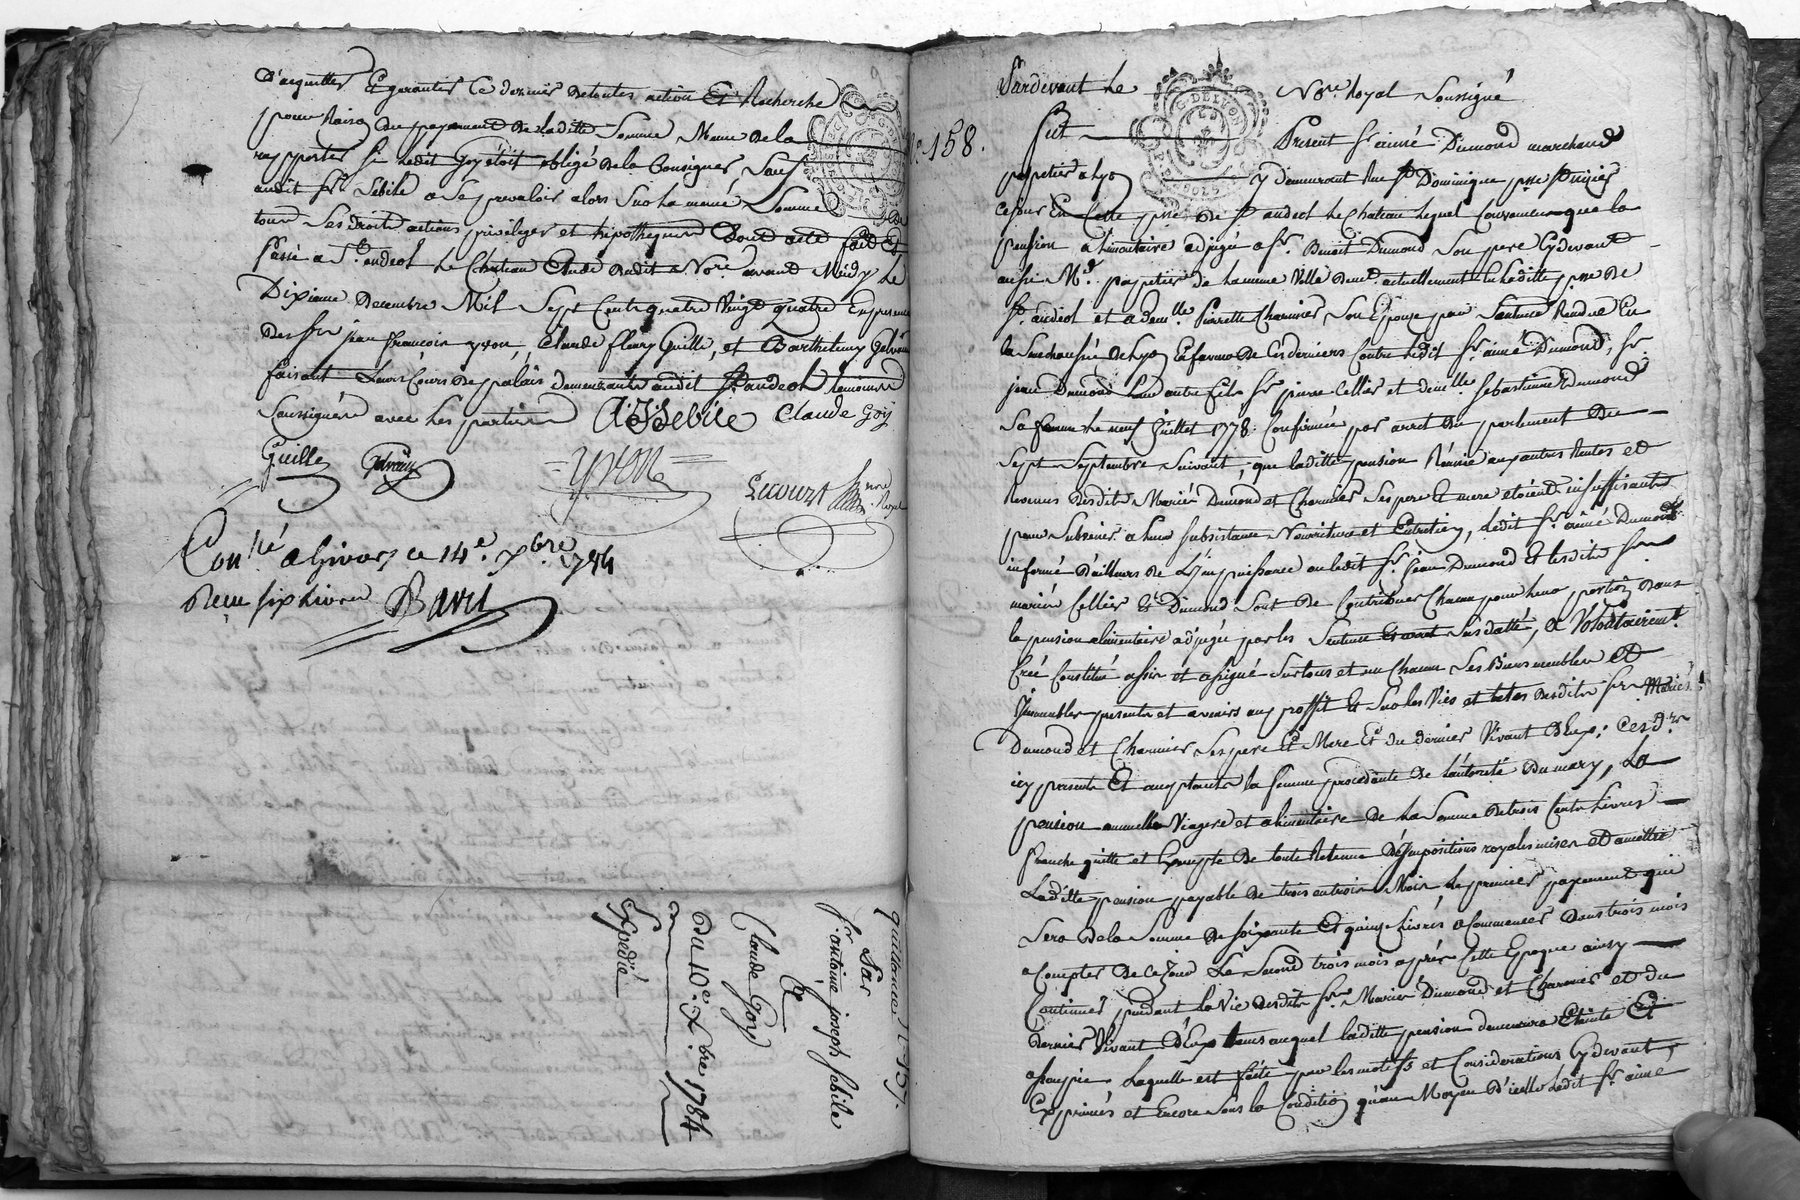 D'acquitter Et garantir Ce dernier de toutes action Et Recherche
pour Raison du payement de laditte Somme Meme de la
rapporter si ledit Goy étoit obligé de la Consigner, Sauf
audit Sr. Sebile a Se prevaloir alors Sur la meme Somme de
tous Ses droits actions privileges et hipotheques Dont acte fait et
Passé a St. andeol le Château Etude dudit Nore avant Midy le
Dixieme Decembre Mil Sept Cent quatre Vingt quatre En presence
des Srs jean francois yvon, Claude fleury Guille, et Barthelemy
faisant Leurs Cours de palais demeurants audit St. andeol temoins
Soussignés avec les parties AJ Sebile Claude Goy
Guille yvon
Lecourt nre Royal
Conlé a Givors ce 14e. Xbre. 1784
Reçu six Livres
quittance N. 157.
Par
Sr. antoine joseph Sebile
a
Claude Goy
Du 10e. Xbre 1784
Expédié
G. DE LYON
Pardevant Le Nore. Royal Soussigné
N. 158.
fut Present Sr. aimé Dumond marchand
papetier a Lyon y demeurant Rue St. Dominique psse St. nizier
ce jour En Cette psse de St. andeol le Chateau lequel Convaincu que la
pension alimentaire adjugée a Sr. Benoit Dumond Son pere Cydevant
aussi Md. papetier de la meme Ville demt. actuellement En laditte psse de
St. andeol et a demlle. Pierrette Charmier Son Epouse par Sentence Rendue En
la Senechaussée de Lyon En faveur de Ces derniers Contre ledit Sr. aimé Dumond, Sr.
jean Dumond Leur autre fils Sr. pierre Cellier et demlle. Sebastienne Dumond
Sa femme le neuf Juillet 1778. Confirmée par arret du parlement du
Sept Septembre Suivant, que laditte pension Reunie aux autres Rentes et
Revenus desdits Mariés Dumond et Charmier Ses pere Et mere étoient insuffisants
pour Subvenir a Leur Subsistance Nourriture et Entretien, ledit Sr. aimé Dumond
informé d'ailleurs de L'impuissance ou ledit Sr. Jean Dumond Et lesdits
mariés Cellier Et Dumond Sont de Contribuer Chacun pour Leur portion dans
la pension alimentaire adjugée par les Sentence Et arret Susdatté, a Volontairemt.
Créé Constitué assis et assigné Sur tous et un Chacun Ses Biens meubles et
Immeubles presents et avenirs au proffit Et Sur les Vies et tetes desdits Srs Mariés
Dumond et Charmier Ses pere Et Mere Et du dernier Vivant D'Eux; Ces drs
icy presents Et acceptants la femme procedante de l'autorité du mary, La
pension annuelle Viagere et alimentaire de la Somme de trois Cents Livres
franche quitte et Exempte de toute Retenue D'Impositions royales mises et a mettre
Laditte pension payable de trois en trois Mois le premier payement qui
Sera de la Somme de soixante Et quinze Livres a Commencer dans trois mois
a Compter de Ce jour Le Second trois mois après Cette Epoque ainsy
Continuer pendant la Vie desdits Srs Mariés Dumond et Charmier et du
dernier Vivant d'Eux tems auquel laditte pension demeurera Eteinte Et
assoupie Laquelle est faite pour les motifs et Considerations Cydevant
Exprimés et Encore Sous la Condition qu'au Moyen d'icelle Ledit Sr. aimé